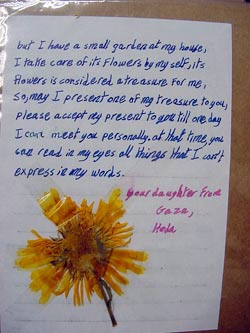 but I have a small garden at my house,
I take care of its flowers by my self, its
flowers is considered a treasure for me,
So, may I present one of my treasure to you,
please accept my present to you till one day
I can meet you personally. at that time, you
can read in my eyes all things that I can't
express in my words.
your daughter from
Gaza,
Hela